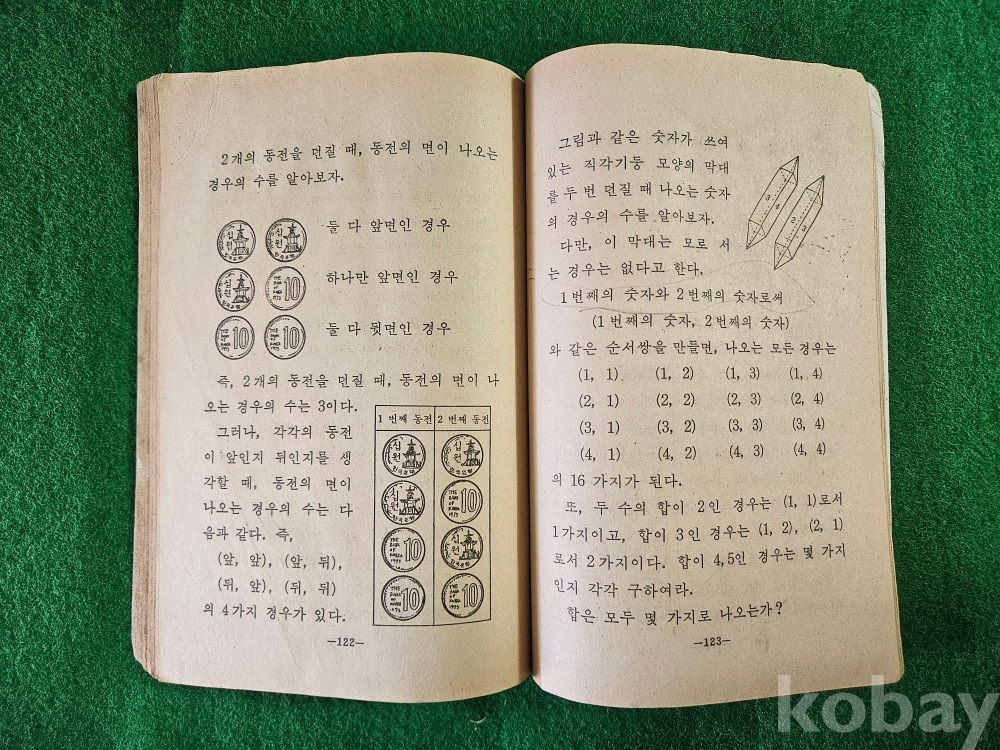 2개의 동전을 던질 때, 동전의 면이 나오는
경우의 수를 알아보자.
둘 다 앞면인 경우
하나만 앞면인 경우
둘 다 뒷면인 경우
즉, 2개의 동전을 던질 때, 동전의 면이 나
오는 경우의 수는 3이다.
그러나, 각각의 동전
이 앞인지 뒤인지를 생
각할 때, 동전의 면이
나오는 경우의 수는 다
음과 같다. 즉,
(앞, 앞), (앞, 뒤),
(뒤, 앞), (뒤, 뒤)
의 4가지 경우가 있다.
1 번째 동전 2 번째 동전
십원 한국은행 십원 한국은행
십원 한국은행 THE BANK OF KOREA 10
THE BANK OF KOREA 10 십원 한국은행
THE BANK OF KOREA 10 THE BANK OF KOREA 10
—122—
그림과 같은 숫자가 쓰여
있는 직각기둥 모양의 막대
를 두 번 던질 때 나오는 숫자
의 경우의 수를 알아보자.
다만, 이 막대는 모로 서
는 경우는 없다고 한다.
1번째의 숫자와 2번째의 숫자로써
(1 번째의 숫자, 2번째의 숫자)
와 같은 순서쌍을 만들면, 나오는 모든 경우는
(1, 1) (1, 2) (1, 3) (1, 4)
(2, 1) (2, 2) (2, 3) (2, 4)
(3, 1) (3, 2) (3, 3) (3, 4)
(4, 1) (4, 2) (4, 3) (4, 4)
의 16 가지가 된다.
또, 두 수의 합이 2인 경우는 (1, 1)로서
1가지이고, 합이 3인 경우는 (1, 2), (2, 1)
로서 2가지이다. 합이 4,5인 경우는 몇 가지
인지 각각 구하여라.
합은 모두 몇 가지로 나오는가?
—123—
kobay